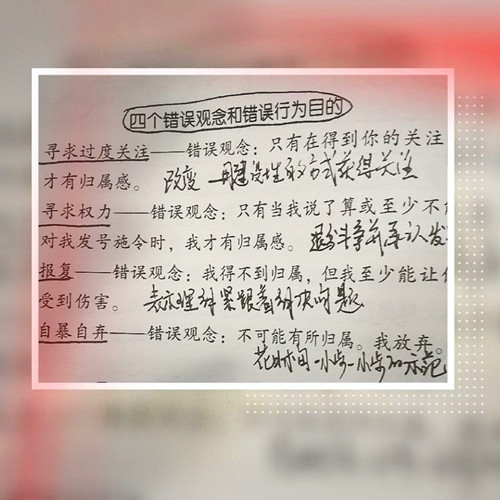 四个错误观念和错误行为目的
寻求过度关注——错误观念：只有在得到你的关注
才有归属感。 改变 用建设性的方式获得关注
寻求权力——错误观念：只有当我说了算或至少不
对我发号施令时，我才有归属感。 退出斗争并承认
报复——错误观念：我得不到归属，但我至少能让
受到伤害。 表示理解 紧跟着解决问题
自暴自弃——错误观念：不可能有所归属。我放弃。
花时间一小步一小步的示范